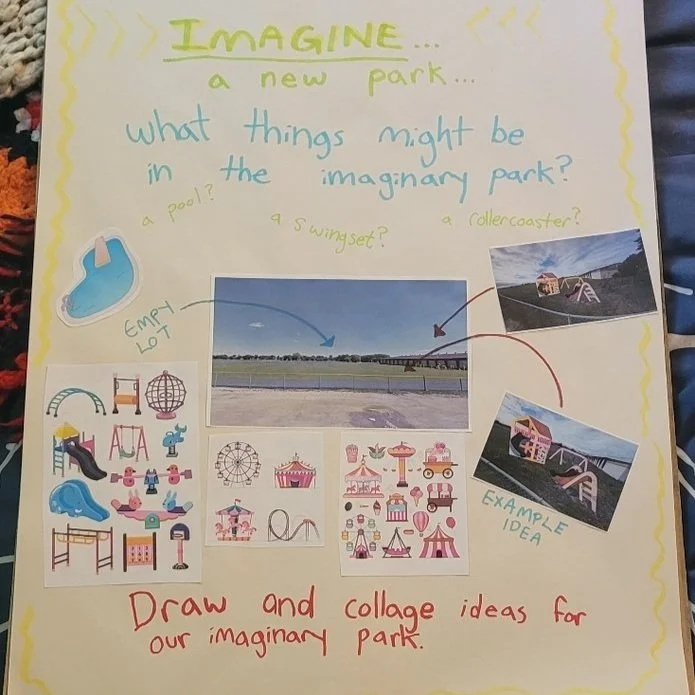 IMAGINE...
a new park...
what things might be
in the imaginary park?
a pool?
a swingset?
a rollercoaster?
EMPY
LOT
EXAMPLE
IDEA
Draw and collage ideas for
our imaginary park.